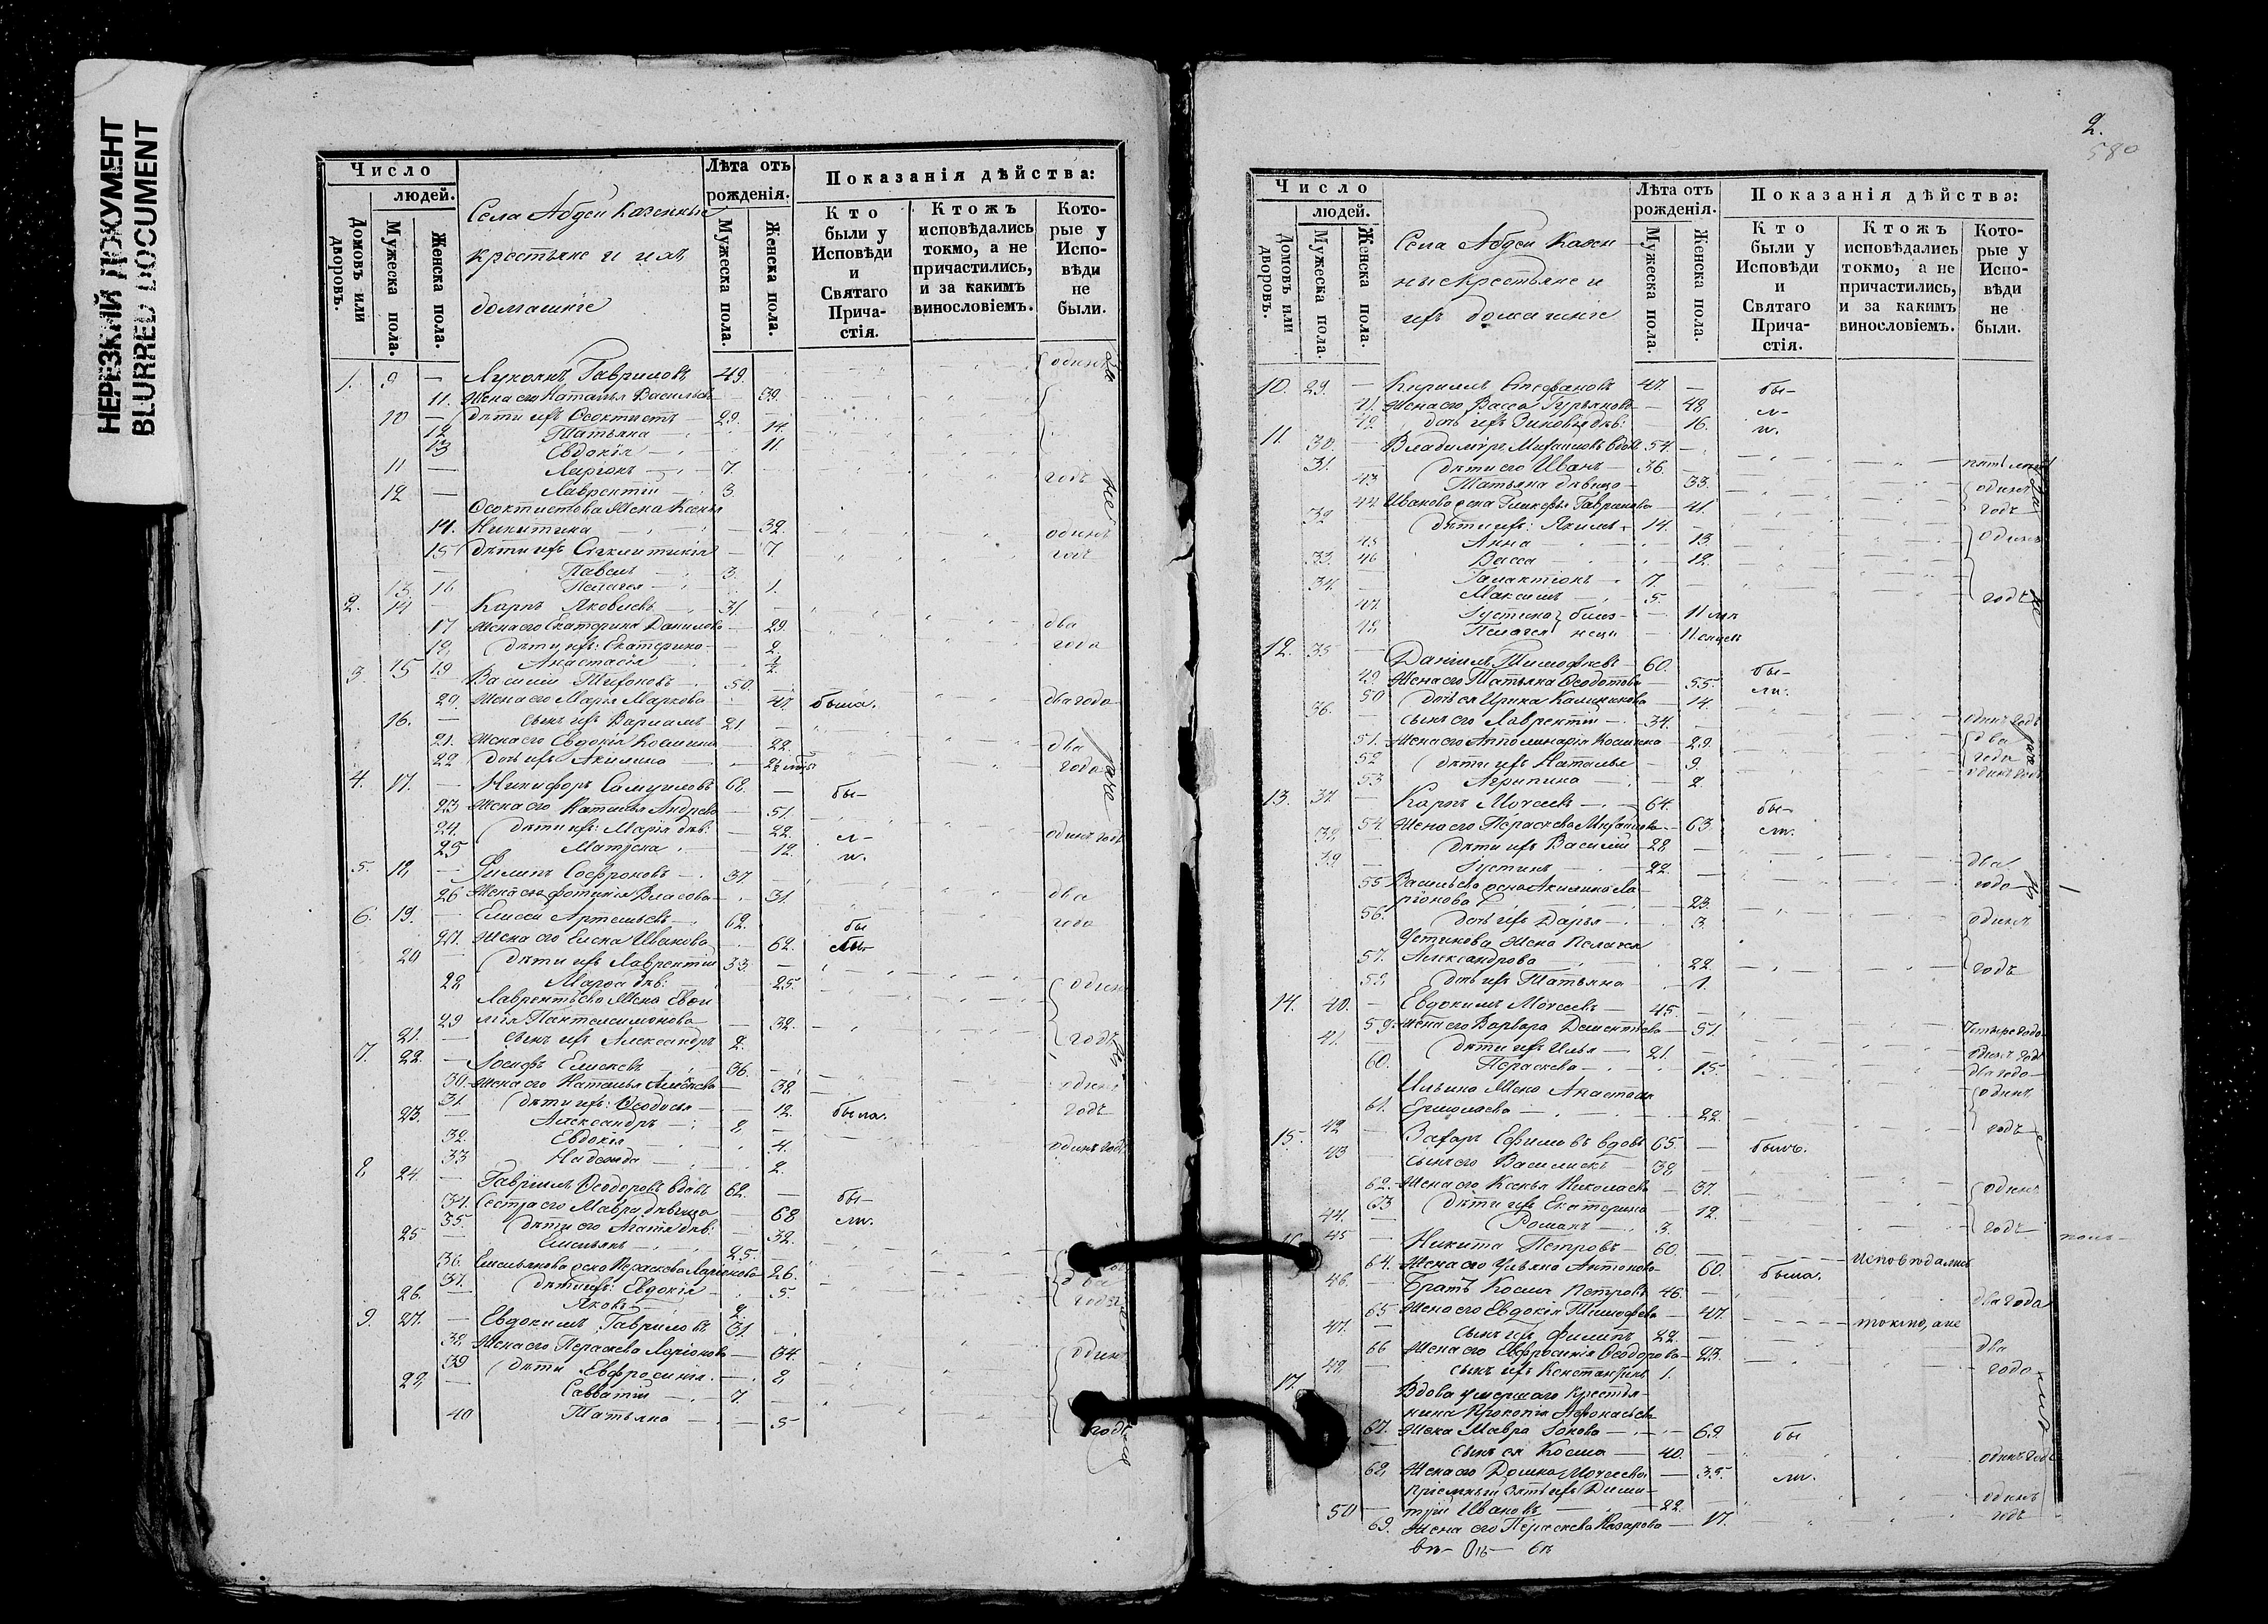 НЕРЕЗКИЙ ДОКУМЕНТ
BLURRED DOCUMENT
Число
людей.
Домовъ или дворовъ.
Мужеска пола.
Женска пола.
Села Абдеи Казенные
крестьяне и ихъ
домашніе
Лѣта отъ
рожденія.
Мужеска пола.
Женска пола.
Показанія дѣйства:
Кто были у Исповѣди и Святаго Прича-стія.
Ктожъ исповѣдались токмо, а не причастились, и за какимъ винословіемъ.
Кото-рые у Испо-вѣди не были.
1. 9 — Лукоянъ Гавриловъ 49. — одинъ
11. Жена его Наталья Васильева — 39.
10 — Дѣти ихъ Ѳеоктистъ 29. —
12 Татьяна — 14.
13 Евдокія — 11.
11 — Ларіонъ — 7.
12 — Лаврентій — 3 годъ
Ѳеоктистова Жена Ксенья
14. Никитина — 32. одинъ
15 Дѣти ихъ Сигклитикія — 7. годъ
— Павелъ — 3.
13 16 Пелагея — 1.
2. 14 — Карпъ Яковлевъ — 31. —
17 Жена его Екатерина Данилова — 29. два
18, Дѣти ихъ: Екатерина — 2. года
19 Анастасія — ½
3. 15 — Василій Тихоновъ — 50.
20. Жена его Марья Маркова — 47 была. два года
16. — сынъ ихъ Варлаамъ 21.
21. Жена его Евдокія Космина — 22. два
22 Дочь ихъ Акилина года
4. 17. — Никифоръ Самуиловъ 68. — бы-
23 Жена его Наталья Андреева — 51.
24. Дѣти ихъ: Марія дѣв: — 22. л-
25 Матрена — 12. и. одинъ годъ
5. 18, — Филипъ Софроновъ — 37. —
26 Жена его Фотинія Власова — 31. два
6. 19. — Елисей Артемьевъ — 62. бы года
27. Жена его Елена Иванова — 62. ли-
20 — Дѣти ихъ Лаврентій 33. —
28 Марѳа дѣв: — 25. одинъ
Лаврентьева Жена Евѳи
29 мія Пантелеимонова — 32.
21. — сынъ ихъ Александръ 2. годъ
7. 22. — Іосифъ Елисеевъ 36. —
30. Жена его Наталья Алексѣева — 38 одинъ
31. Дѣти ихъ: Ѳеодосья — 12. была. годъ
23. — Александръ — 8, —
32. Евдокія — 4. одинъ годъ
33 Надежда — 2.
8 24. — Гавріилъ Ѳеодоровъ вдовъ 62. — бы-
34. Сестра его Мавра дѣвица — 68 ли.
35. Дѣти его Агаѳія дѣв: — 32.
25 — Емельянъ — 25. —
36. Емельянова жена Параскева Ларіонова 26.
37. Дѣти ихъ: Евдокія — 5. два
26. — Яковъ — 2. года
9. 27. — Евдокимъ Гавриловъ 31. —
38, Жена его Параскева Ларіонова — 34. одинъ
39 Дѣти Евфросинія. — 8,
28, — Савватій — 7. —
40 Татьяна — 5 годъ
2.
580
Число
людей.
Домовъ или дворовъ.
Мужеска пола.
Женска пола.
Села Абдеи Казен
ные Крестьяне и
ихъ домашніе
Лѣта отъ
рожденія.
Мужеска пола.
Женска пола.
Показанія дѣйства:
Кто были у Исповѣди и Святаго Прича-стія.
Ктожъ исповѣдались токмо, а не причастились, и за какимъ винословіемъ.
Кото-рые у Испо-вѣди не были.
10. 29. — Кириллъ Стефановъ 47. — бы-
41. Жена его Васса Гурьянова — 48 л-
42. дочь ихъ Зиновья дѣв: — 16. и.
11. 30. — Владиміръ Михаиловъ вдовъ 54. — пять лѣтъ
31. — Дѣти его Иванъ — 36.
43 Татьяна дѣвица — 33. одинъ
44. Иванова жена Гликерья Гаврилова — 41. годъ
32 Дѣти ихъ: Якимъ — 14. —
45 Анна — 13. одинъ
46 Васса — 12.
33. Галактіонъ — 7.
34. — Максимъ — 5. годъ
47. Іустина близ-
48 Пелагея нецы
12. 35 — Даніилъ Тимофеевъ — 60. бы-
49. Жена его Татьяна Ѳеодотова — 55. ли.
50 дочь ея Ирина Калиникова — 14.
36. — сынъ его Лаврентій — 34. — одинъ годъ
51. Жена его Апполинарія Космина — 29. два
52 Дѣти ихъ Наталья — 9. года
53 Агрипина — 2. одинъ годъ
13. 37. — Карпъ Моѵсеевъ — 64. бы-
54. Жена его Параскева Михайлова — 63. ли.
38, — Дѣти ихъ Василій — 28 —
39 — Іустинъ — 22. — два
55 Васильева жена Акилина Ла- года
ріонова — 23.
56. дочь ихъ Дарья — 3. одинъ
Устинова Жена Пелагея
57. Александрова — 22. годъ
58. дочь ихъ Татьяна — 1.
14. 40. — Евдокимъ Моѵсеевъ — 45. —
59. Жена его Варвара Дементьева — 51. Четыре года
41. — Дѣти ихъ Илья — 21. — одинъ годъ
60. Параскева — 15. два года
Ильина Жена Анастасія одинъ
61. Ермолаева — 22. годъ
15. 42 — Захаръ Ефимовъ вдовъ 65. — былъ.
43 — сынъ его Василискъ — 38 —
62. Жена его Ксенья Николаева — 37. одинъ
63 Дѣти ихъ Екатерина — 12.
44. — Романъ — 3. годъ
45 — Никита Петровъ — 60. — исповѣдались
64. Жена его Ульяна Антонова — 60. была.
46. — Братъ Косма Петровъ 46. — два года
65 Жена его Евдокія Тимофеева — 47. токмо, а не
47. — сынъ ихъ Филипъ 22. — два
66 Жена его Евфросинія Ѳеодорова — 23. года
48, — сынъ ихъ Константинъ 1.
17. Вдова умершаго Крестья-
нина Прокопія Аѳонасьева
67. Жена Мавра Іонова — 69 бы
— сынъ ея Косма — 40. — одинъ годъ
68, Жена его Домна Моѵсеева — 35. ли.
пріемный зять ихъ Дими- одинъ
50 — трій Ивановъ — 22. — годъ
69. Жена его Параскева Назарова — 17.